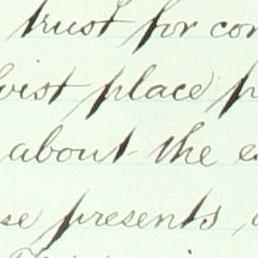 trust for con
vist place p
about the e
se presents,